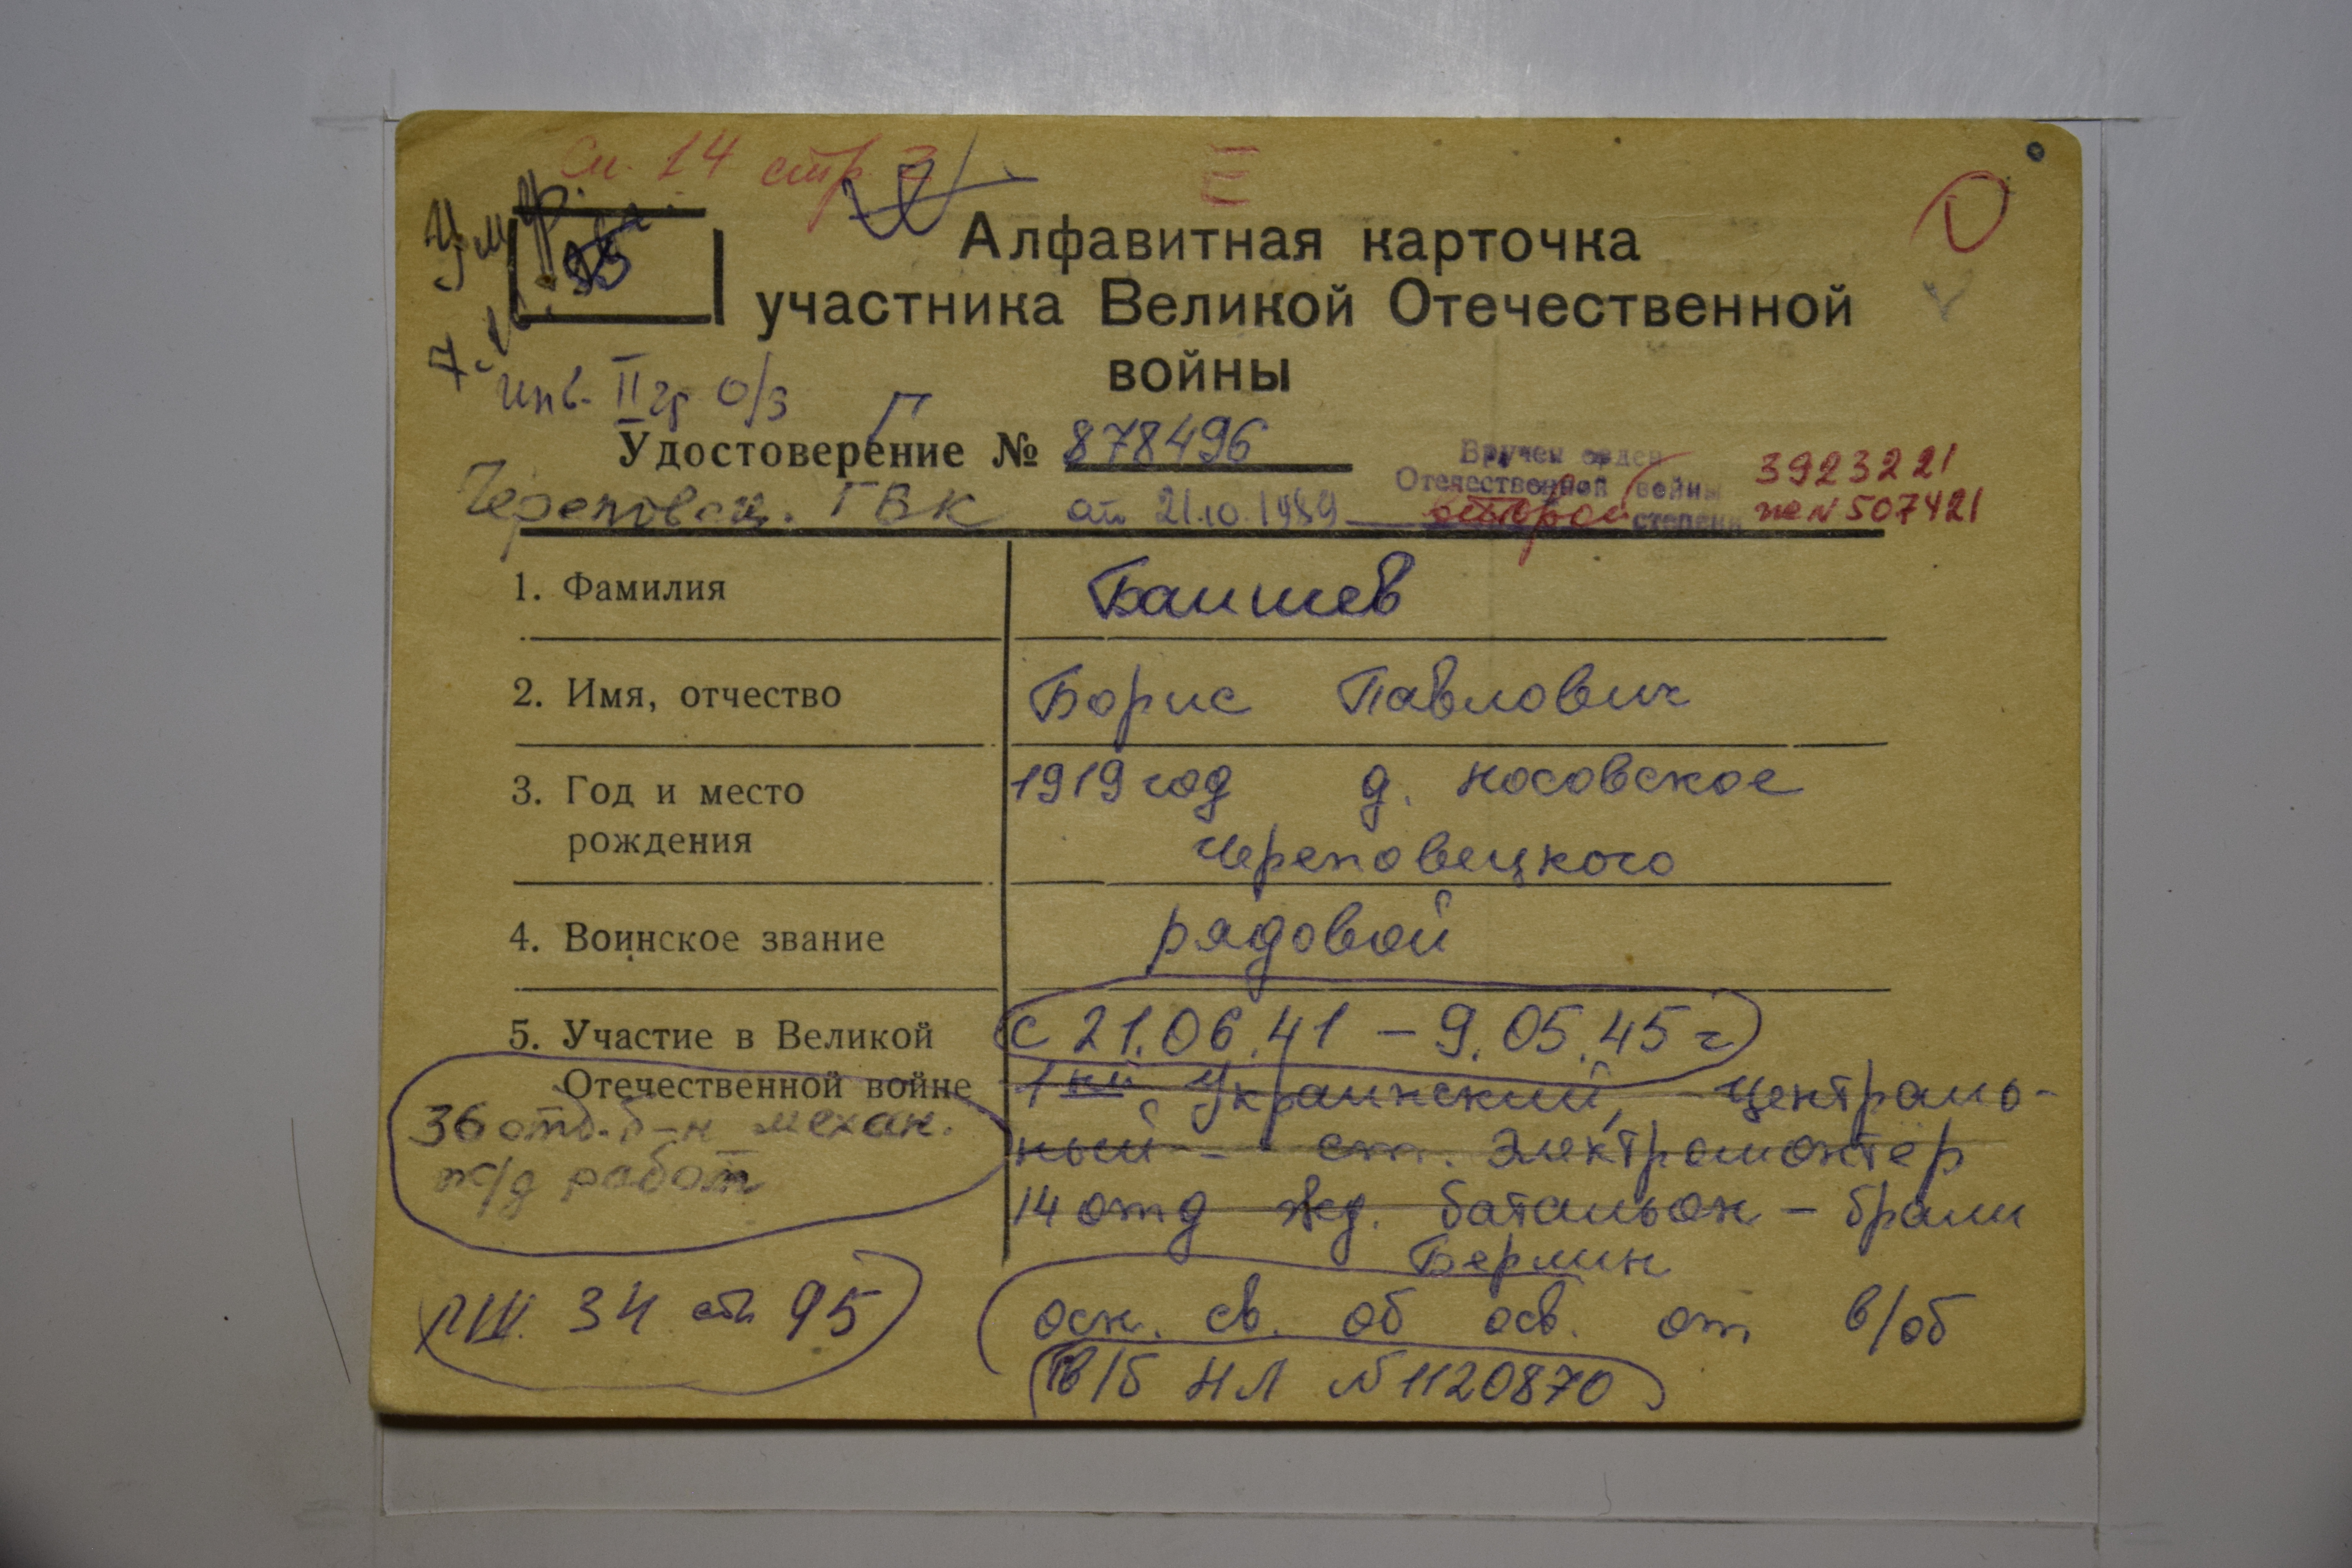 См. 14 стр 2
Умр.
7.
Алфавитная карточка
участника Великой Отечественной
войны
инв. II гр О/З
Г
Удостоверение № 878496
Вручен орден
Отечественной войны
второй степени
3923221
№ 507421
Череповец. ГВК от 21.10.1989
1. Фамилия Баишев
2. Имя, отчество Борис Павлович
3. Год и место 1919 год д. Носовское
рождения Череповецкого
4. Воинское звание рядовой
5. Участие в Великой с 21.06.41 – 9.05.45 г
Отечественной войне 1кий Украинский, Централь-
36 отд. б-н механ. ный - ст. Электромонтёр
ж/д работ
14 отд жд. батальон – брали
Берлин
осн. св. об осв. от в/об
34 ст 95
в/б НЛ №1120870